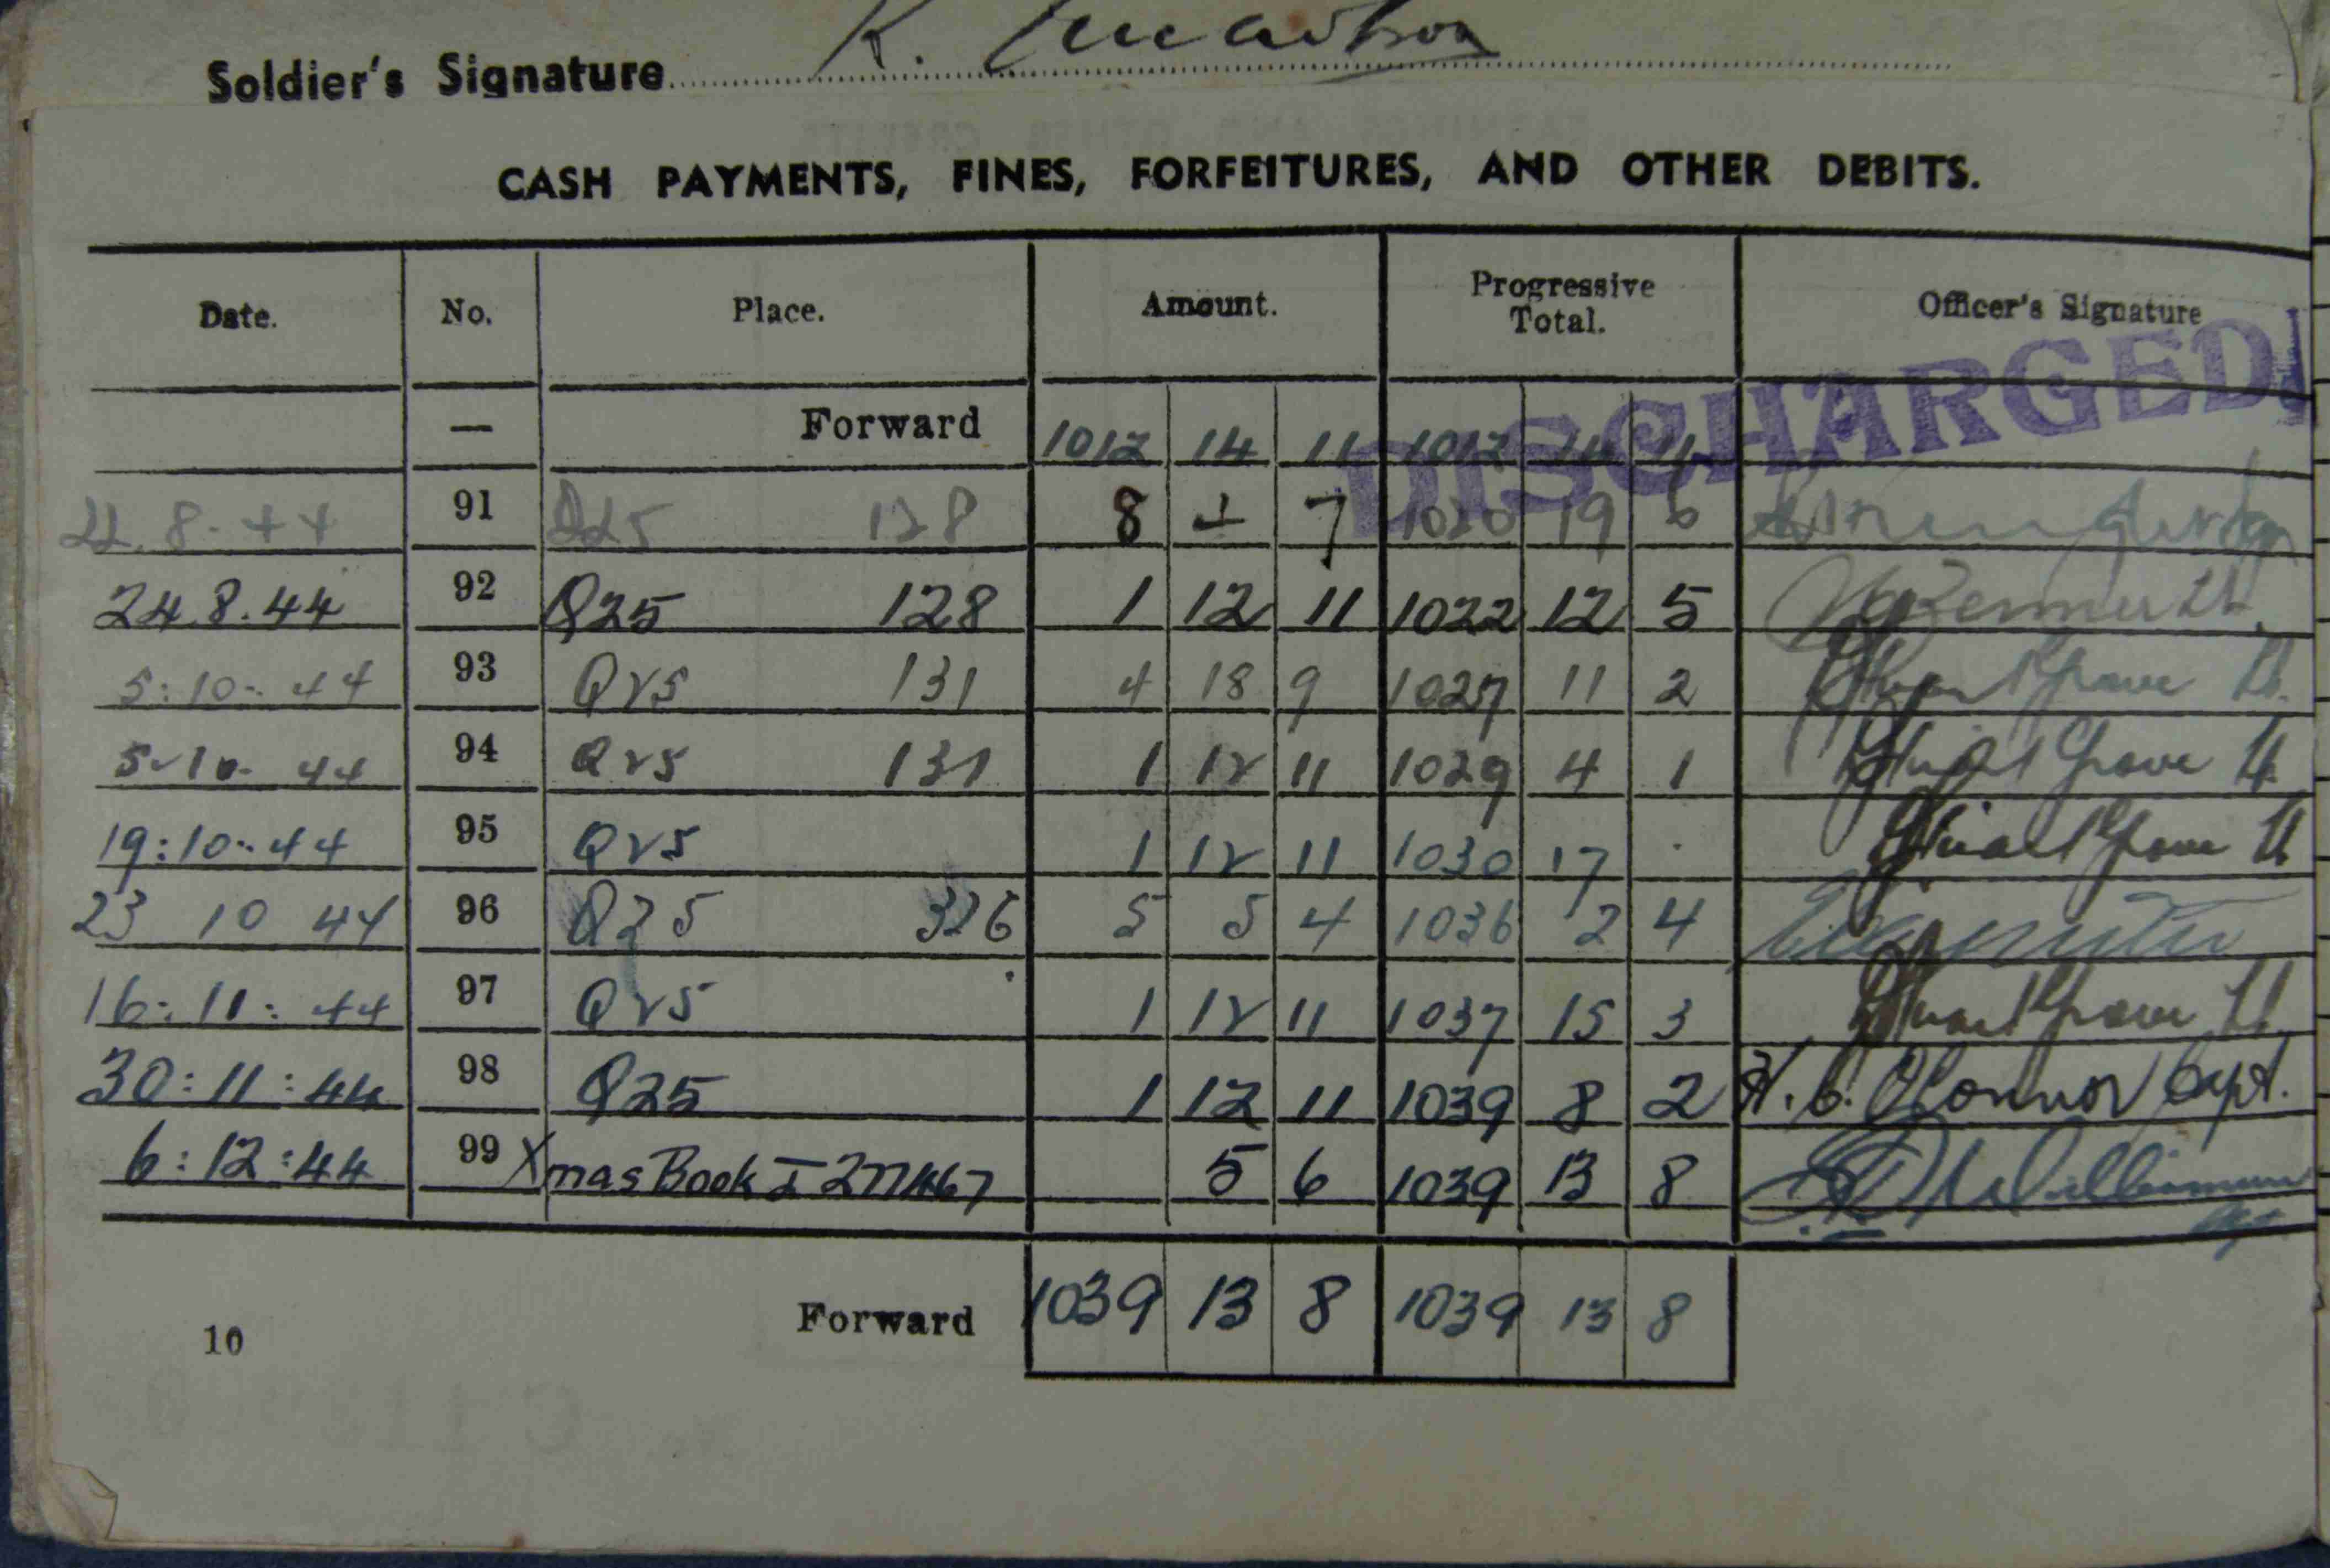 K.
Soldier's Signature
CASH PAYMENTS, FINES, FORFEITURES, AND OTHER DEBITS.
Date. No. Place. Amount. Progressive Total. Officer's Signature
DISCHARGED
— Forward 1012 14 11 1012 14 11
8.44 91 Q25 128 8 4 7 1020 19 6
24.8.44 92 Q25 128 1 12 11 1022 12 5 Lt.
5:10:44 93 Q25 131 4 18 9 1027 11 2 Stuart Grove Lt.
5-10-44 94 Q25 131 1 12 11 1029 4 1 Stuart Grove Lt
19:10:44 95 Q25 1 12 11 1030 17 . Stuart Grove Lt
23 10 44 96 Q25 326 5 5 4 1036 2 4
16:11:44 97 Q25 1 12 11 1037 15 3 Stuart Grove Lt
30:11:44 98 Q25 1 12 11 1039 8 2 H. C. O'Connor Capt.
6:12:44 99 Xmas Book 5 6 1039 13 8 Williamson
Forward 1039 13 8 1039 13 8
10